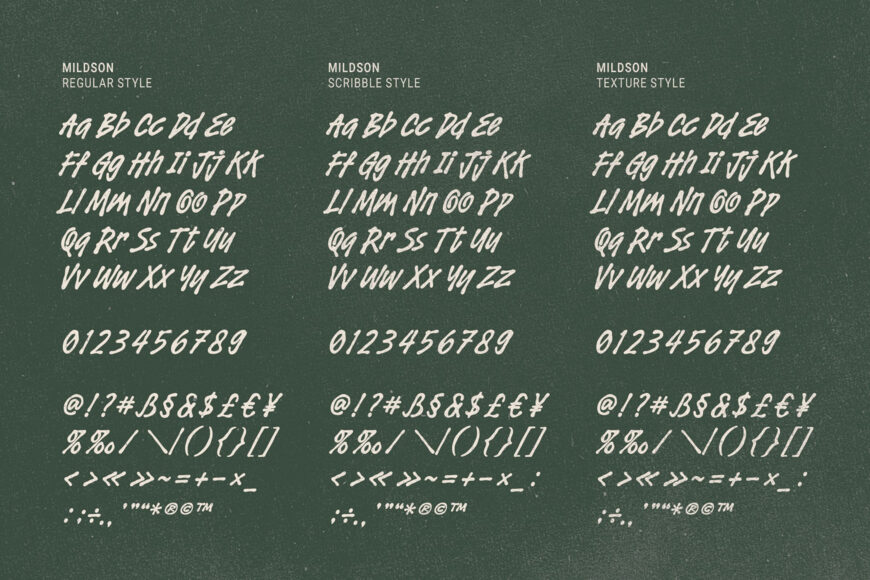 MILDSON
REGULAR STYLE
Aa Bb Cc Dd Ee
Ff Gg Hh Ii Jj Kk
Ll Mm Nn Oo Pp
Qq Rr Ss Tt Uu
Vv Ww Xx Yy Zz
0123456789
@!?#ß§&$£€¥
%‰/\|(){}[]
<>«»~=+-×_
:;÷., '"“*®©™
MILDSON
SCRIBBLE STYLE
Aa Bb Cc Dd Ee
Ff Gg Hh Ii Jj Kk
Ll Mm Nn Oo Pp
Qq Rr Ss Tt Uu
Vv Ww Xx Yy Zz
0123456789
@!?#ß§&$£€¥
%‰/\|(){}[]
<>«»~=+-×_:
;÷., '"“*®©™
MILDSON
TEXTURE STYLE
Aa Bb Cc Dd Ee
Ff Gg Hh Ii Jj Kk
Ll Mm Nn Oo Pp
Qq Rr Ss Tt Uu
Vv Ww Xx Yy Zz
0123456789
@!?#ß§&$£€¥
%‰/\|(){}[]
<>«»~=+-×_:
;÷., '"“*®©™